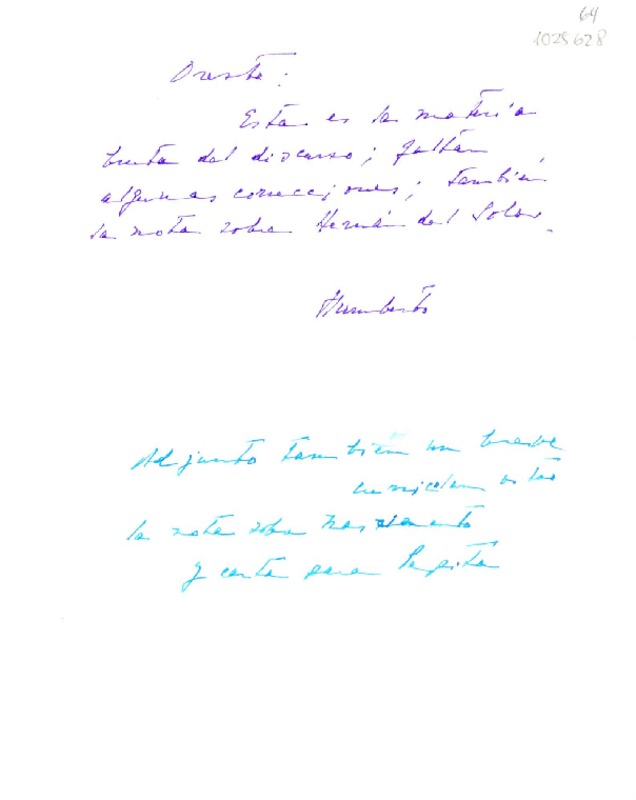 64
1025628
Oreste:
Esta es la materia
bruta del discurso; faltan
algunas correcciones; también
la nota sobre Hernán del Solar.
Humberto
Adjunto también un breve
curriculum
la nota sobre Nascimento
y carta para Pepita